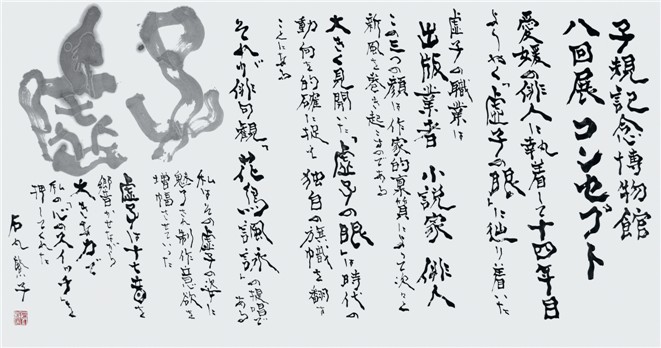 子規記念博物館
八回展 コンセプト
愛媛の俳人に執着して十四年目
ようやく「虚子の眼」に辿り着いた
虚子の職業は
出版業者 小説家 俳人
この三つの顔は作家的稟質によって次々と
新風を巻き起こすのである
大きく見開いた「虚子の眼」は時代の
動向を的確に捉え 独自の旗幟を翻す
ことになる
それが俳句観「花鳥諷詠」の提唱である
私はその虚子の姿に
魅了され制作意欲を
増幅させていた
虚子は十七音を
響かせながら
大きな力で
私の心のスイッチを
押してくれた
石丸繁子